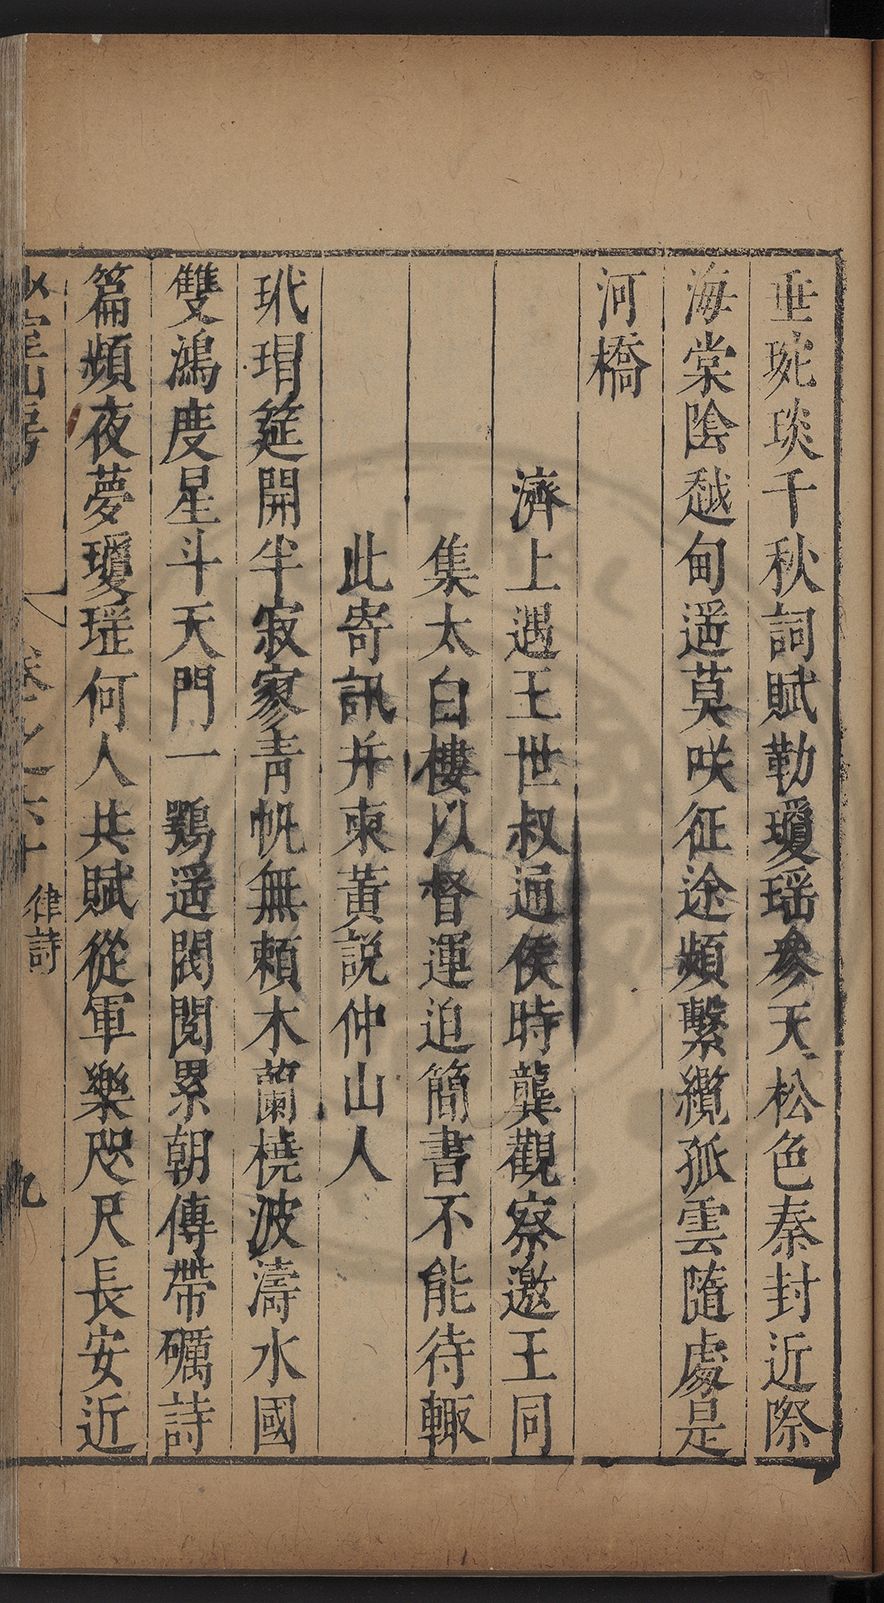 垂琬琰千秋詞賦勒瓊瑶參天松色秦封近際
海棠陰越甸遥莫咲征途頻繫纜孤雲隨處是
河橋
濟上遇王世叔通侯時龔觀察邀王同
集太白樓以督運迫簡書不能待輙
此寄訊并柬黃說仲山人
玳瑁筵開半寂寥青帆無賴木蘭橈波濤水國
雙鴻度星斗天門一鶚遥閥閱累朝傳帶礪詩
篇頻夜夢瓊瑶何人共賦從軍樂咫尺長安近
室山房
卷之六十
律詩
九